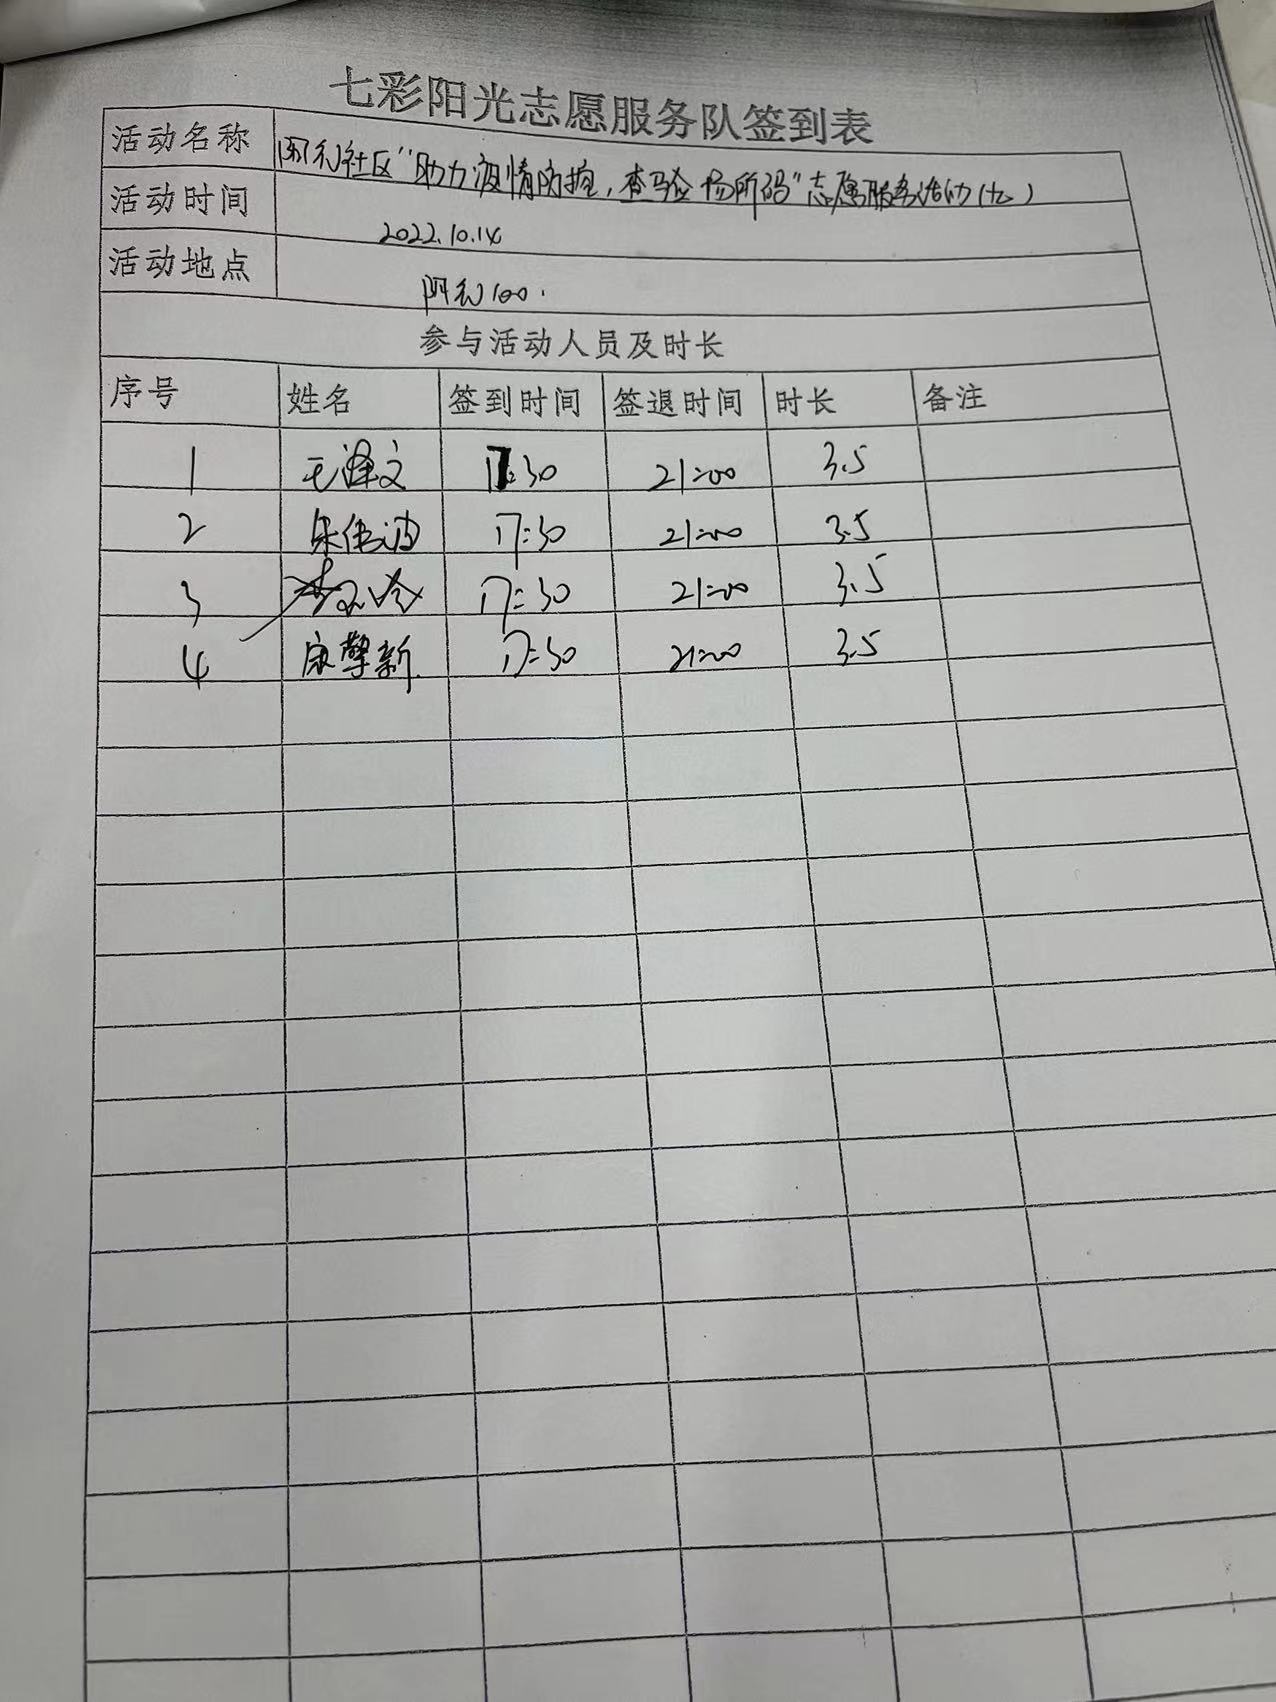 七彩阳光志愿服务队签到表
活动名称 社区"助力疫情防控，查验场所码"志愿服务活动(九)
活动时间 2022.10.14
活动地点 100.
参与活动人员及时长
序号 姓名 签到时间 签退时间 时长 备注
1 王泽文 17:30 21:00 3.5
2 朱伟波 17:30 21:00 3.5
3 17:30 21:00 3.5
4 康馨新 17:30 21:00 3.5